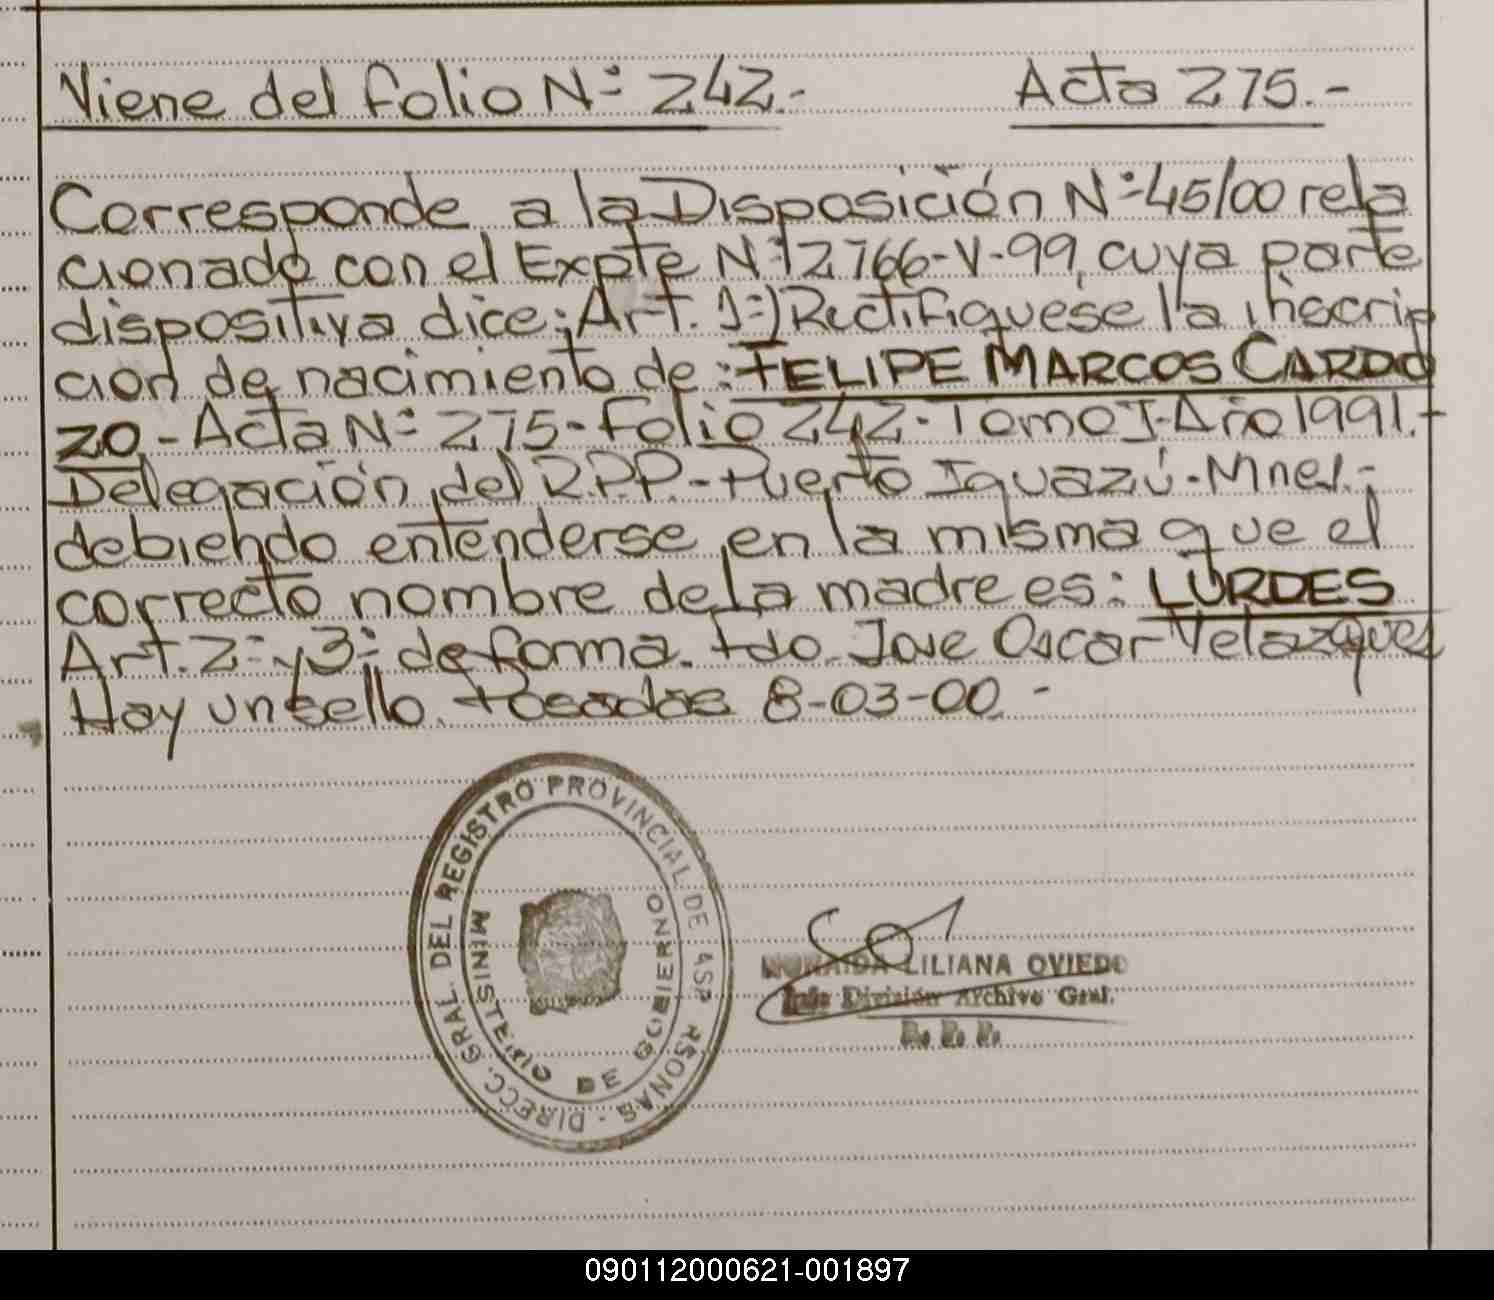 Viene del folio Nº 242.- Acta 275.-
Corresponde a la Disposición Nº 45/00 rela
cionado con el Expte Nº 2766-V-99, cuya parte
dispositiva dice: Art. 1º) Rectifiquese la inscrip
ción de nacimiento de: FELIPE MARCOS CARDO
ZO.- Acta Nº 275- Folio 242- Tomo I- Año 1991.-
Delegación del R.P.P.- Puerto Iguazú- Mnes.-
debiendo entenderse en la misma que el
correcto nombre de la madre es: LURDES
Art. 2º y 3º de forma. Fdo. Jose Oscar Velazques
Hay un sello. Posadas 8-03-00.-
DIRECC. GRAL. DEL REGISTRO PROVINCIAL DE LAS PERSONAS -
MINISTERIO DE GOBIERNO
LILIANA OVIEDO
División Archivo Gral.
R. P. P.
090112000621-001897